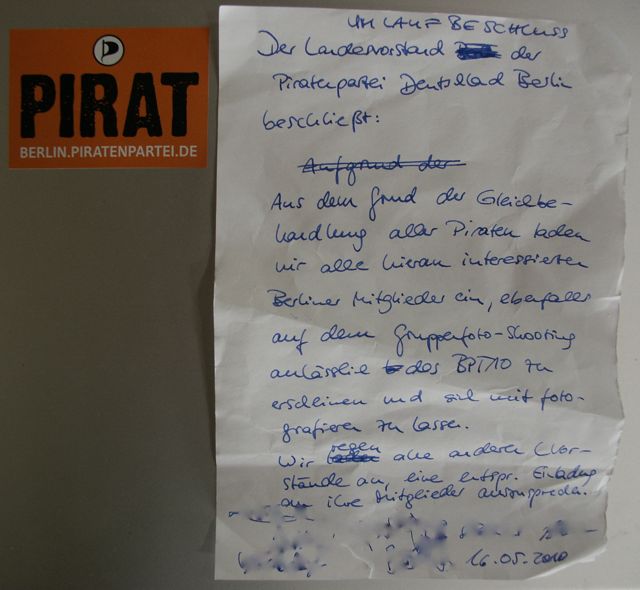 PIRAT
BERLIN.PIRATENPARTEI.DE
UMLAUFBESCHLUSS
Der Landesvorstand der
Piratenpartei Deutschland Berlin
beschließt:
Aufgrund der
Aus dem Grund der Gleichbe-
handlung aller Piraten laden
wir alle hieran interessierten
Berliner Mitglieder ein, ebenfalls
auf dem Gruppenfoto-Shooting
anlässlich des BPT10 zu
erscheinen und sich mit foto-
grafieren zu lassen.
Wir regen alle anderen LVor-
stände an, eine entspr. Einladung
an ihre Mitglieder auszusprechen.
16.05.2010